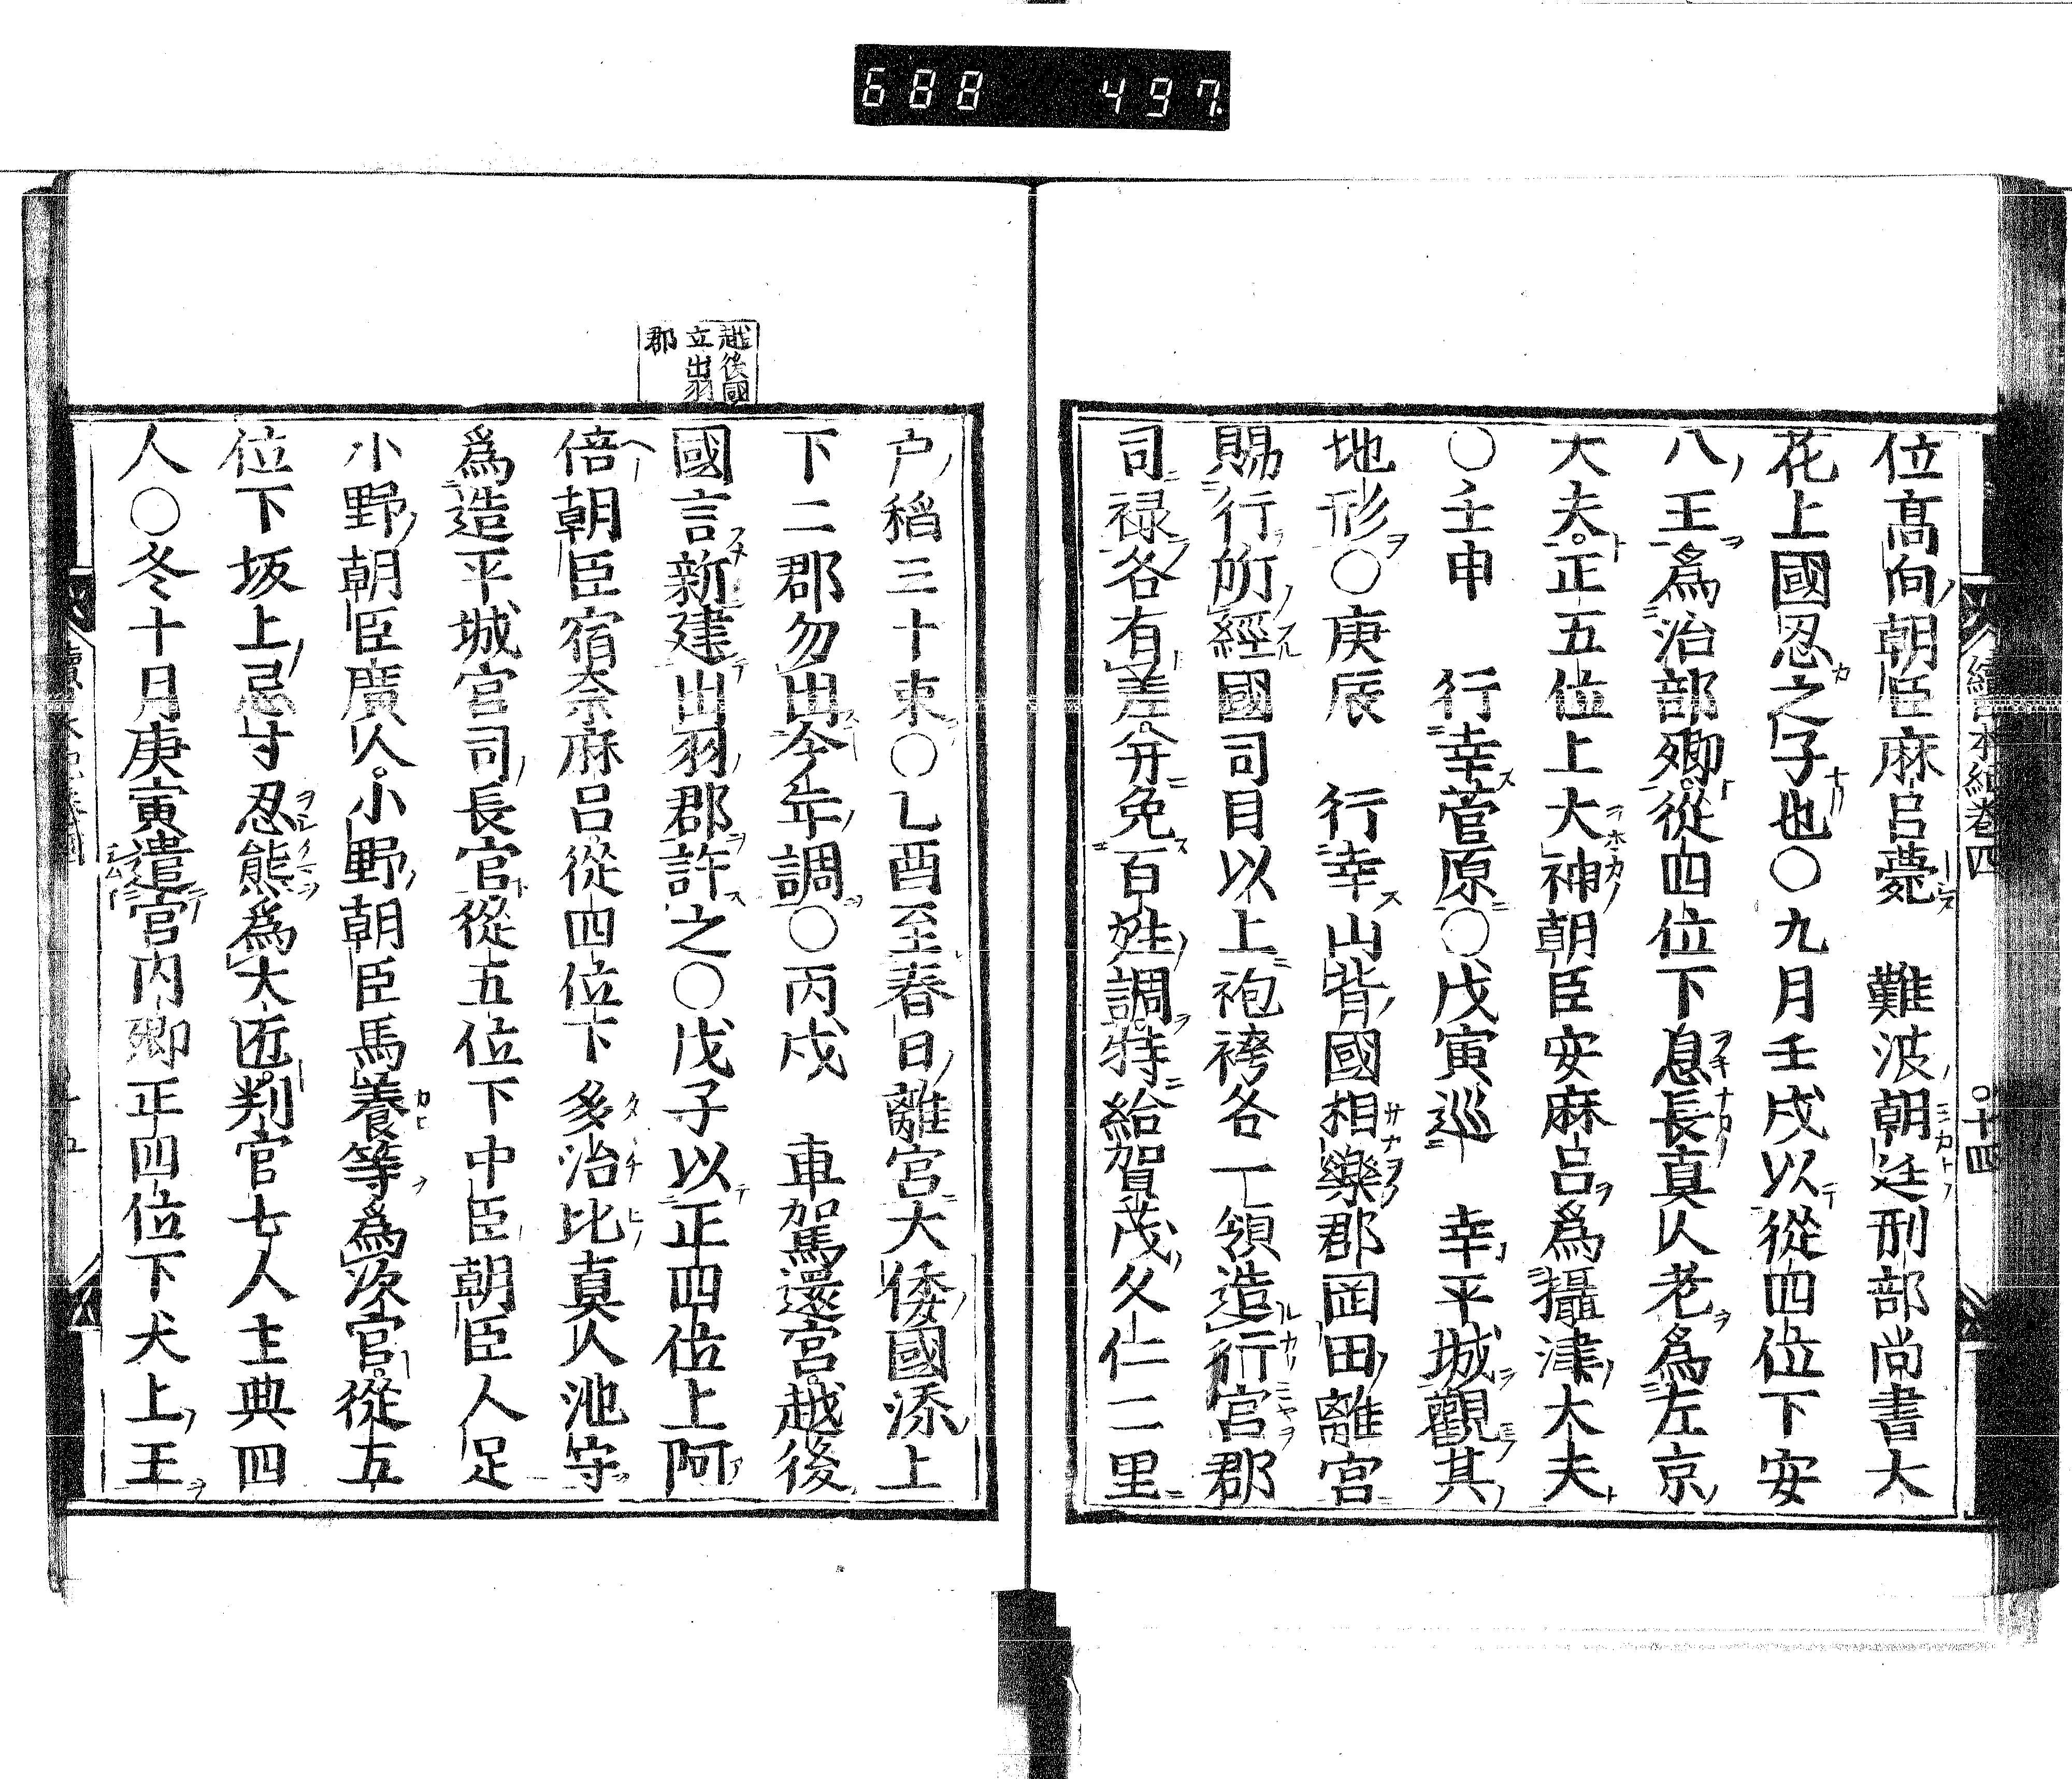 688 497
續日本紀卷四 ○十四
位髙向朝臣麻呂薨 難波朝廷刑部尚書大
花上國忍之子也○九月壬戌以從四位下安
八王爲治部卿從四位下息長真人老爲左京
大夫正五位上大神朝臣安麻呂爲攝津大夫
○壬申 行幸菅原○戊寅巡 幸平城觀其
地形○庚辰 行幸山背國相樂郡岡田離宮
賜行所經國司目以上袍袴各一領造行宮郡
司禄各有差并免百姓調特給賀茂久仁二里
戸稻三十束○乙酉至春日離宮大倭國添上
下二郡勿出今年調○丙戌 車駕還宮越後
國言新建出羽郡許之○戊子以正四位上阿
倍朝臣宿奈麻呂從四位下多治比真人池守
爲造平城宮司長官從五位下中臣朝臣人足
小野朝臣廣人小野朝臣馬養等爲次官從五
位下坂上忌寸忍熊爲大匠判官七人主典四
人○冬十月庚寅遣宮内卿正四位下犬上王
越後國
立出羽
郡